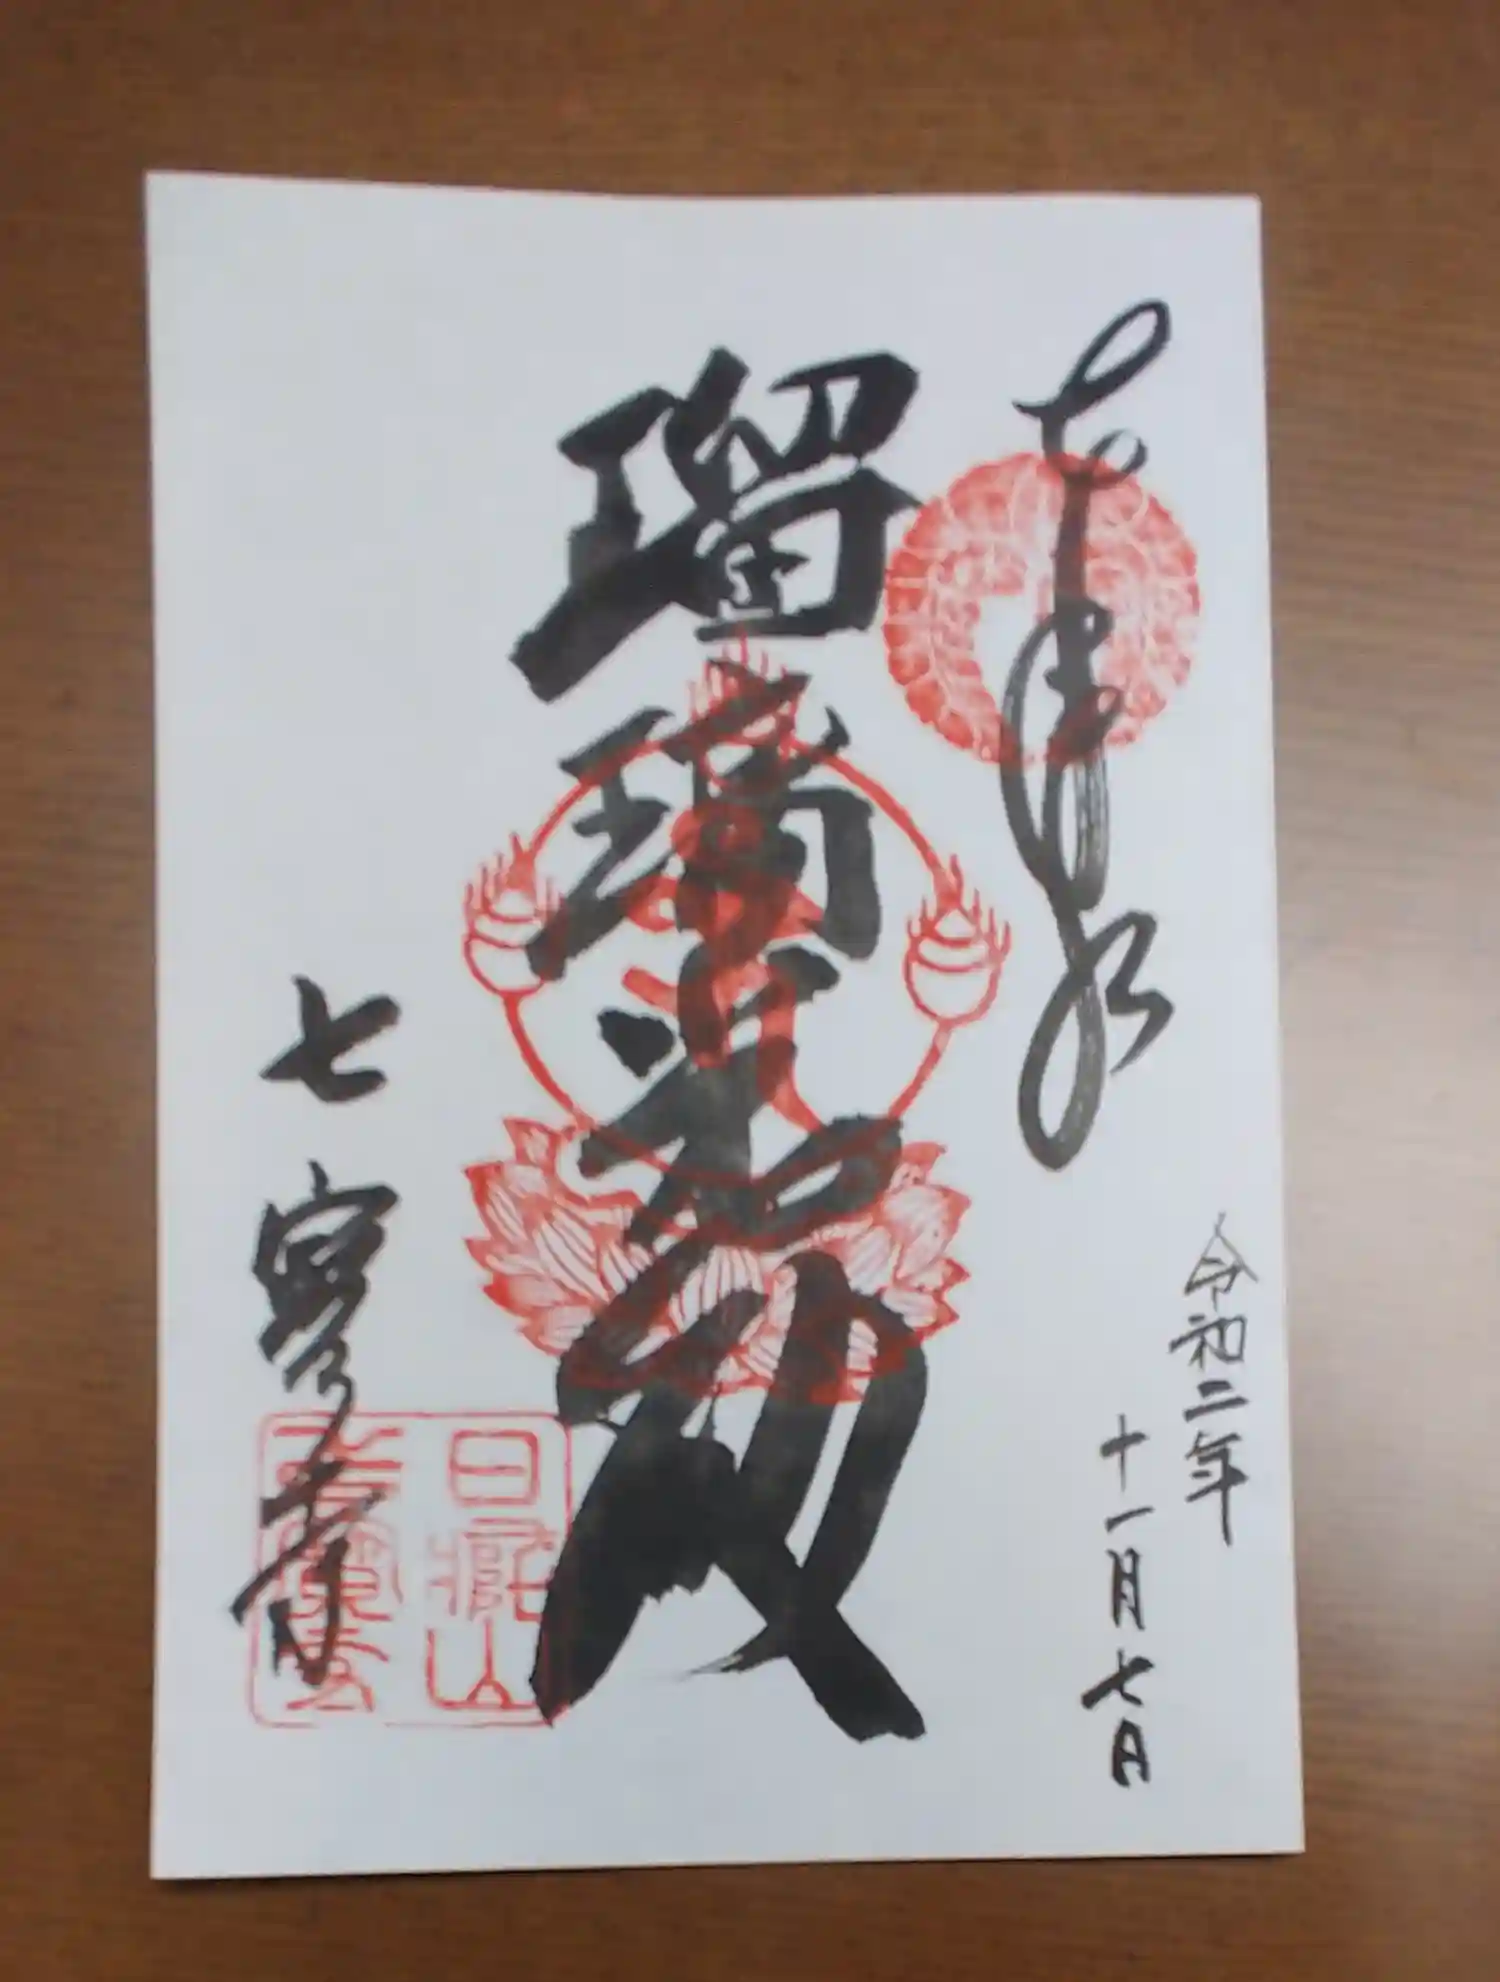 奉拝
令和二年
十一月七日
瑠璃光殿
七宝寺
日厳山
七寶寺